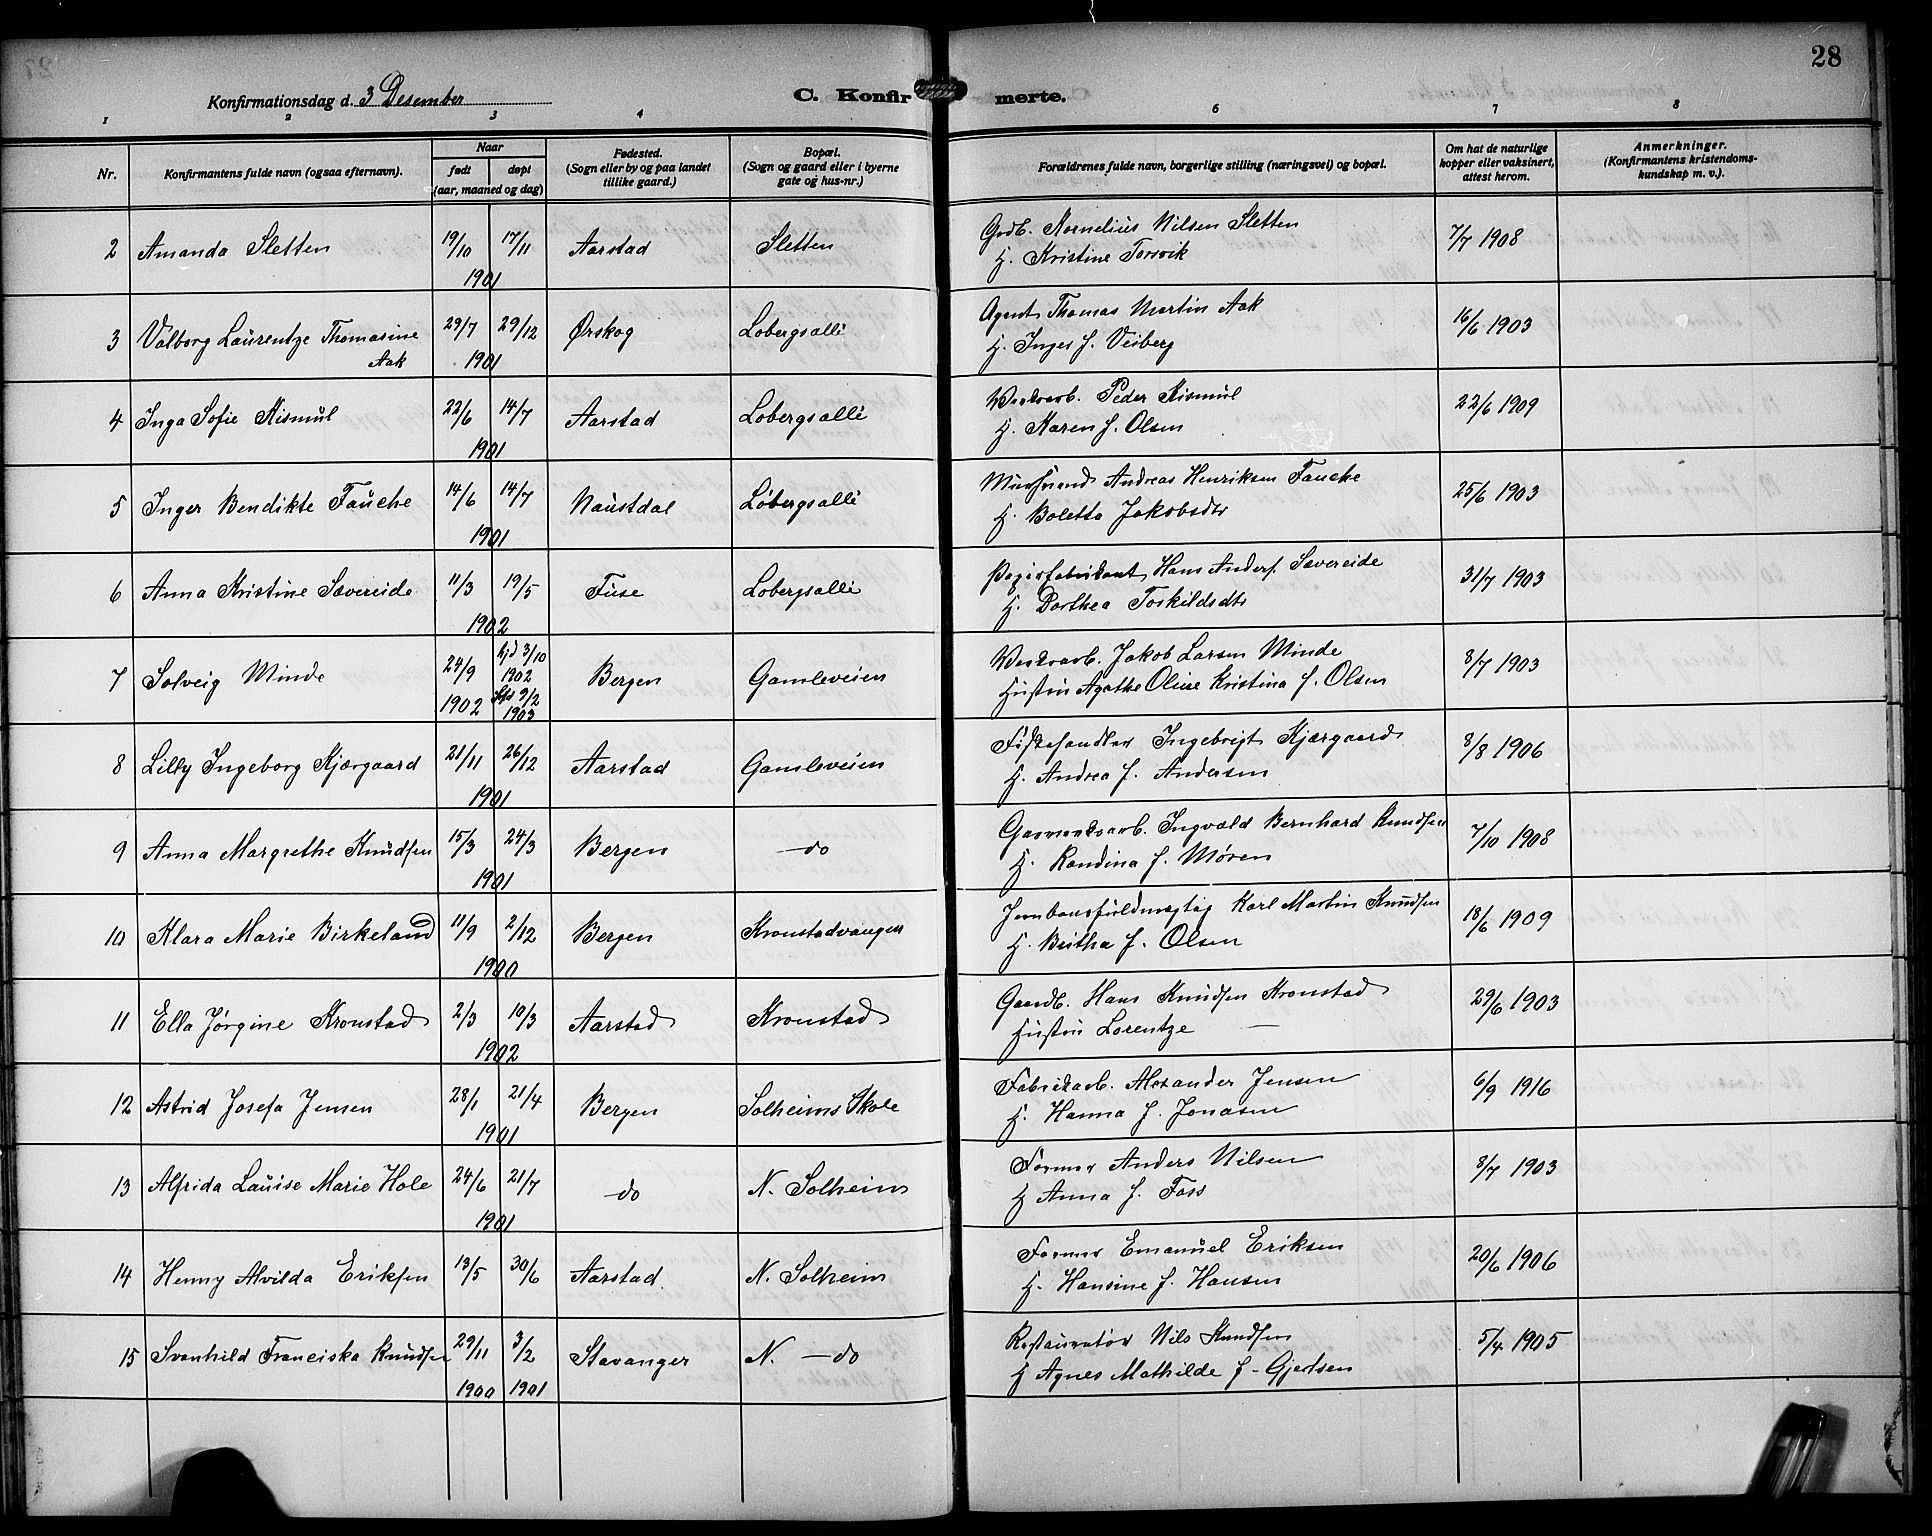 28
Konfirmationsdag d. 3 Desember
C. Konfir merte.
1 2 3 4 6 7 8
Nr.
Konfirmantens fulde navn (ogsaa efternavn).
Naar
født døpt
(aar, maaned og dag)
Fødested.
(Sogn eller by og paa landet
tillike gaard.)
Bopæl.
(Sogn og gaard eller i byerne
gate og hus-nr.)
Forældrenes fulde navn, borgerlige stilling (næringsvei) og bopæl.
Om hat de naturlige
kopper eller vaksinert,
attest herom.
Anmerkninger.
(Konfirmantens kristendoms-
kundskap m. v.).
2 Amanda Sletten 19/10 17/11 Aarstad Sletten Grdb. Kornelius Nilsen Sletten 7/7 1908
1901 H. Kristine Torsvik
3 Valborg Laurentze Thomasine 29/7 29/12 Ørskog Lobergsalle Agent Thomas Martin Aak 16/6 1903
Aak 1901 H. Inger f. Viberg
4 Inga Sofie Kismul 22/6 14/7 Aarstad Lobergsalle Verksarb. Peder Kismul 22/6 1909
1901 H. Karen f. Olsen
5 Inger Bendikte Fauche 14/6 14/7 Naustdal Lobergsalle Andreas Henriksen Fauche 25/6 1903
1901 H. Boletta Jakobsdtr
6 Anna Kristine Sævereide 11/3 19/5 Fuse Lobergsalle Hans Anders. Sævereide 31/7 1903
1902 H. Dorthea Toskildsdtr
7 Solveig Minde 24/9 1902 hjd 3/10 1902 Bergen Gamleveien Verksarb. Jakob Larsen Minde 8/7 1903
9/2 1903 Hustru Agathe Oline Kristina f. Olsen
8 Lilly Ingeborg Kjærgaard 21/11 26/12 Aarstad Gamleveien Fiskehandler Ingebrigt Kjærgaard 8/8 1906
1901 H. Andrea f. Andersen
9 Anna Margrethe Knudsen 15/3 24/3 Bergen —do Gasverksarb. Ingvald Bernhard Knudsen 7/10 1908
1901 H. Randina f. Møren
10 Klara Marie Birkeland 11/9 2/12 Bergen Kronstadvangen Jernbanefuldmægtig Karl Martin Knudsen 18/6 1909
1900 H. Britha f. Olsen
11 Ella Jørgine Kronstad 2/3 10/3 Aarstad Kronstad Gaardb. Hans Knudsen Kronstad 29/6 1903
1902 Hustru Lorentze —
12 Astrid Josefa Jensen 28/1 21/4 Bergen Solheims Skole Fabrikarb. Alexander Jensen 6/9 1916
1901 H. Hanna f. Jonasen
13 Alfrida Lauise Marie Hole 24/6 21/7 —do N. Solheim Former Anders Nilsen 8/7 1903
1901 H Anna f. Foss
14 Henny Alvilda Eriksen 13/5 30/6 Aarstad N. Solheim Former Emanuel Eriksen 20/6 1906
H. Hansine f. Hansen
15 Svanhild Franciska Knudsen 29/11 3/2 Stavanger N. —do Restauratør Nils Knudsen 5/4 1905
1900 1901 H Agnes Mathilde f. Gjertsen